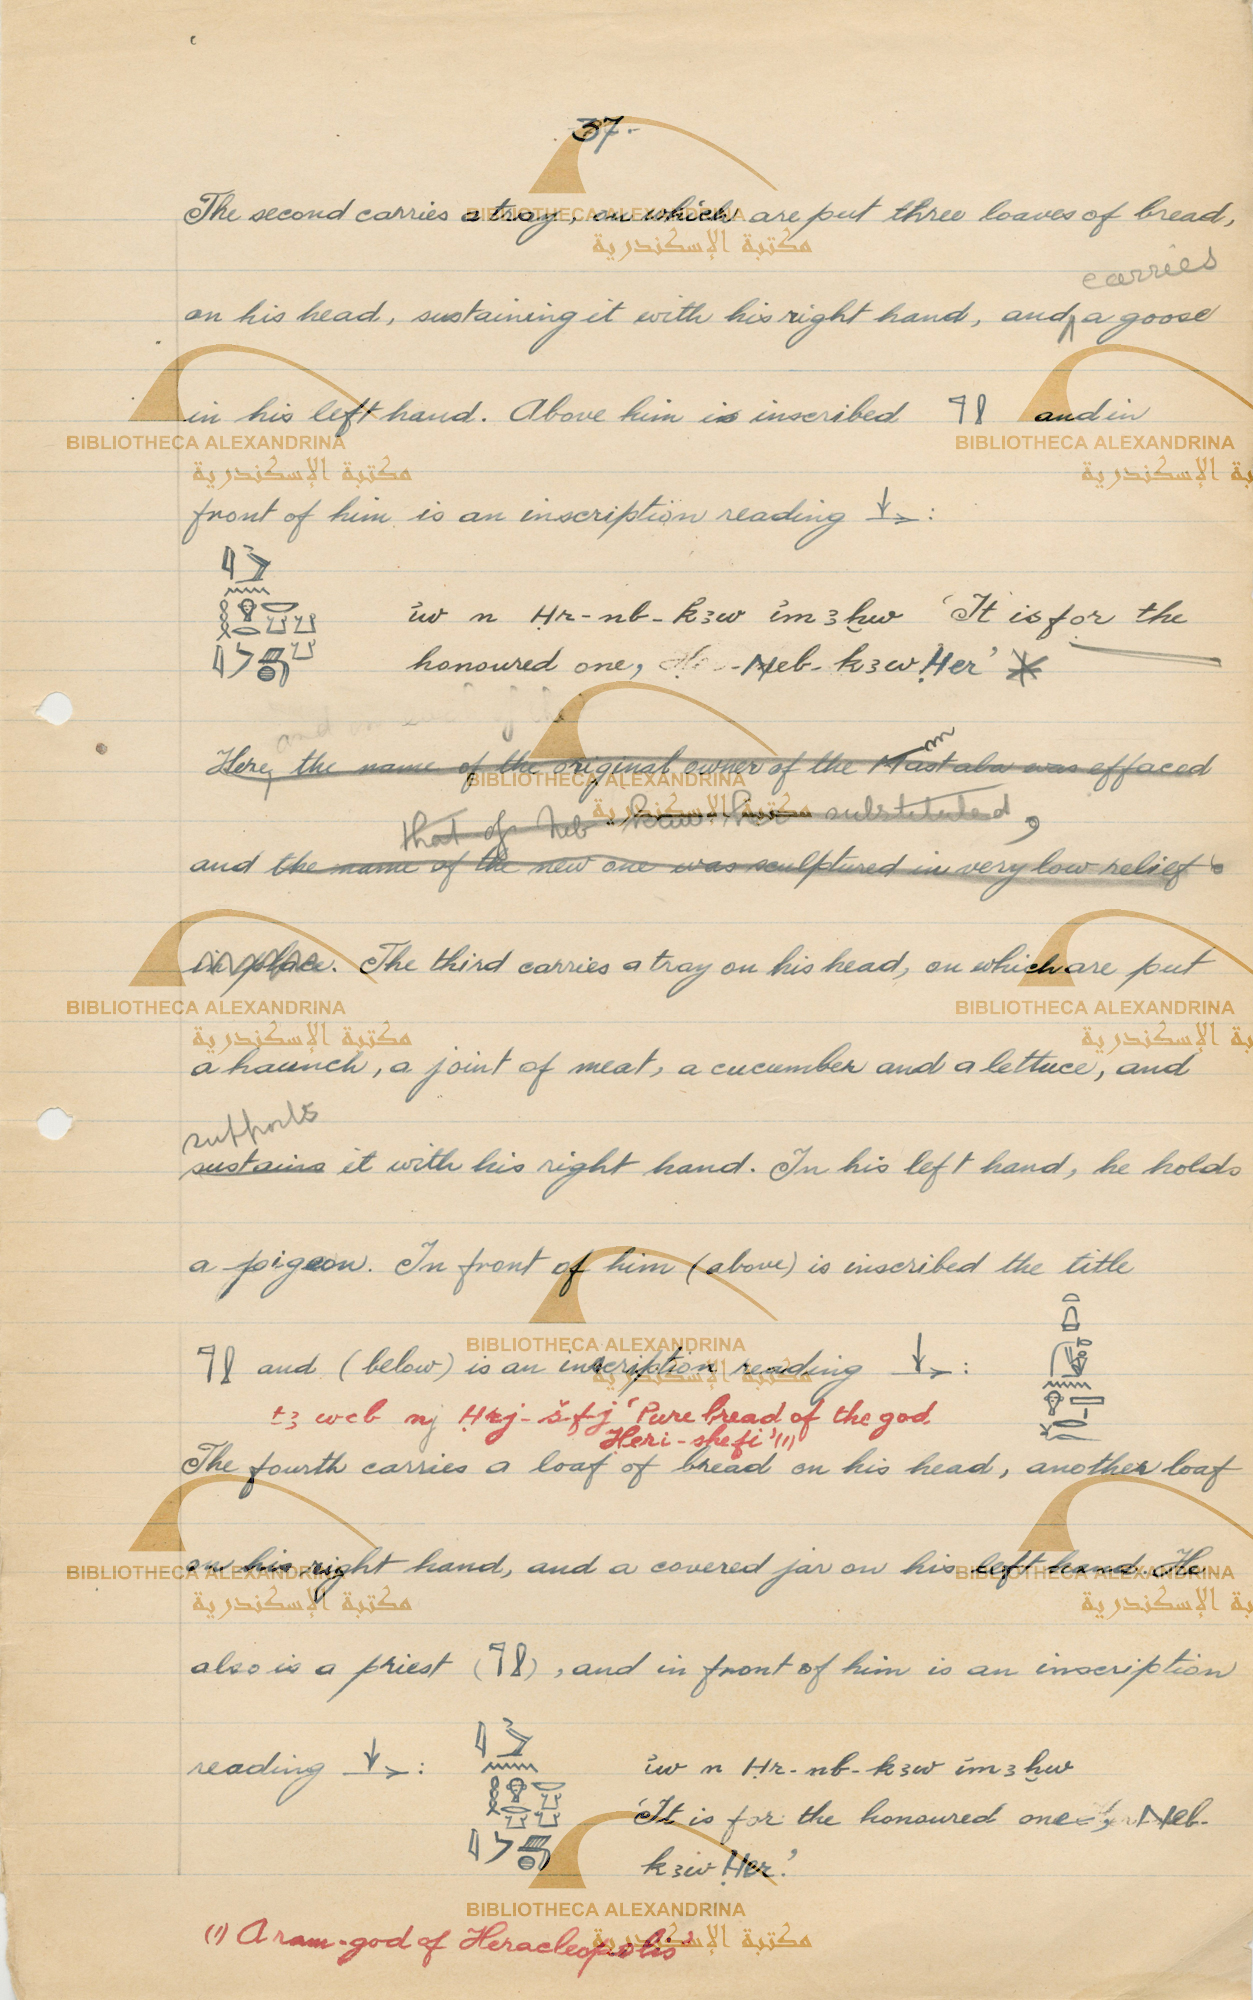 37.
The second carries a tray, on which are put three loaves of bread,
carries
on his head, sustaining it with his right hand, and a goose
in his left hand. Above him is inscribed 𓊹𓍛 and in
front of him is an inscription reading ↓→:
ỉw n Ḥr-nb-kꜣw ỉmꜣḫw 'It is for the
honoured one, -Neb-kꜣw Ḥer'
Here, the name of the original owner of the Mastaba was effaced
m
that of Neb substituted,
and the name of the new one was sculptured in very low relief
in place. The third carries a tray on his head, on which are put
a haunch, a joint of meat, a cucumber and a lettuce, and
supports
sustains it with his right hand. In his left hand, he holds
a pigeon. In front of him (above) is inscribed the title
𓊹𓍛 and (below) is an inscription reading ↓→:
tꜣ wcb nj Ḥrj-š.f.j 'Pure bread of the god
Heri-shefi'(1)
The fourth carries a loaf of bread on his head, another loaf
on his right hand, and a covered jar on his left hand. He
also is a priest (𓊹𓍛), and in front of him is an inscription
reading ↓→:
ỉw n Ḥr-nb-kꜣw ỉmꜣḫw
'It is for the honoured one, Neb-
kꜣw Ḥer.'
(1) A ram-god of Heracleopolis
BIBLIOTHECA ALEXANDRINA
مكتبة الإسكندرية